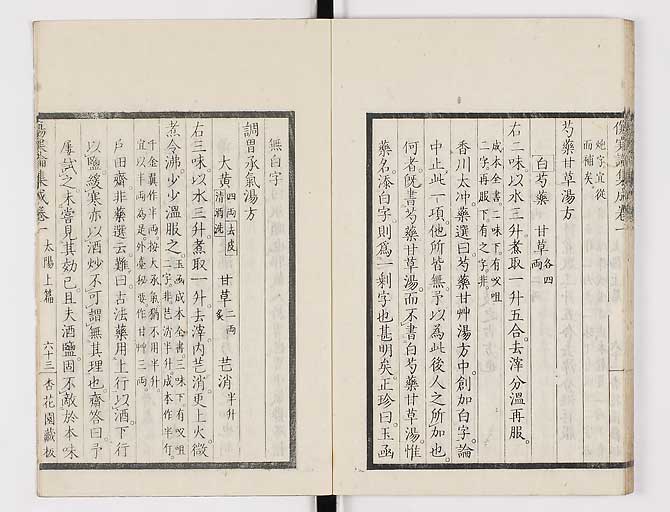 傷寒論集成卷一
炮字宜從
而補矣
芍藥甘草湯方
白芍藥 甘草各四兩
右二味以水三升煮取一升五合去滓分溫再服。
成本全書二味下有㕮咀
二字再服下有之字非
香川太冲藥選曰芍藥甘艸湯方中創加白字論
中止此一項他所皆無予以為此後人之所加也。
何者旣書芍藥甘草湯而不書白芍藥甘草湯惟
藥名添白字則爲一剩字也甚明矣正珍曰玉函
無白字
調胃承氣湯方
大黃四兩去皮清酒洗 甘草二兩炙 芒消半升
右三味以水三升煮取一升去滓内芒消更上火微
煮令沸少少溫服之。玉函成本全書三味下有㕮咀二字非芒消半升成本作半斤
千金翼作半兩按大承氣猶不用半升
宜以半兩為是外臺秘要作甘艸三兩
戶田齋非藥選云難曰古法藥用上行以酒下行
以鹽緩寒亦以酒炒不可謂無其理也齋答曰予
屢試之未嘗見其効已且夫酒鹽固不敵於本味
傷寒論集成卷一 太陽上篇 六十三 杏花園藏板